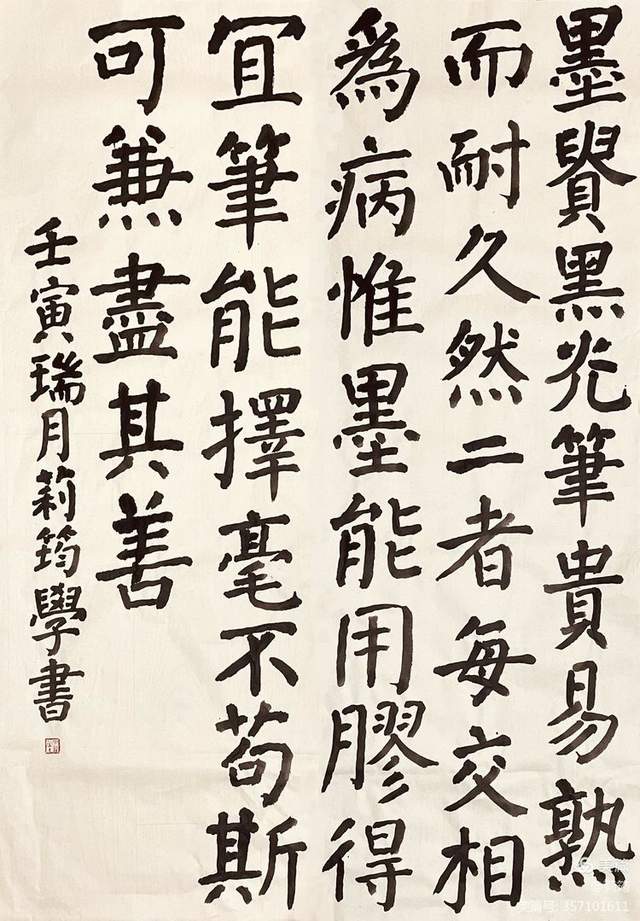 墨貴黑光筆貴易熟
而耐久然二者每交相
爲病惟墨能用膠得
冝筆能擇毫不苟斯
可兼盡其善
壬寅瑞月莉筠學書
美篇号: 357101611